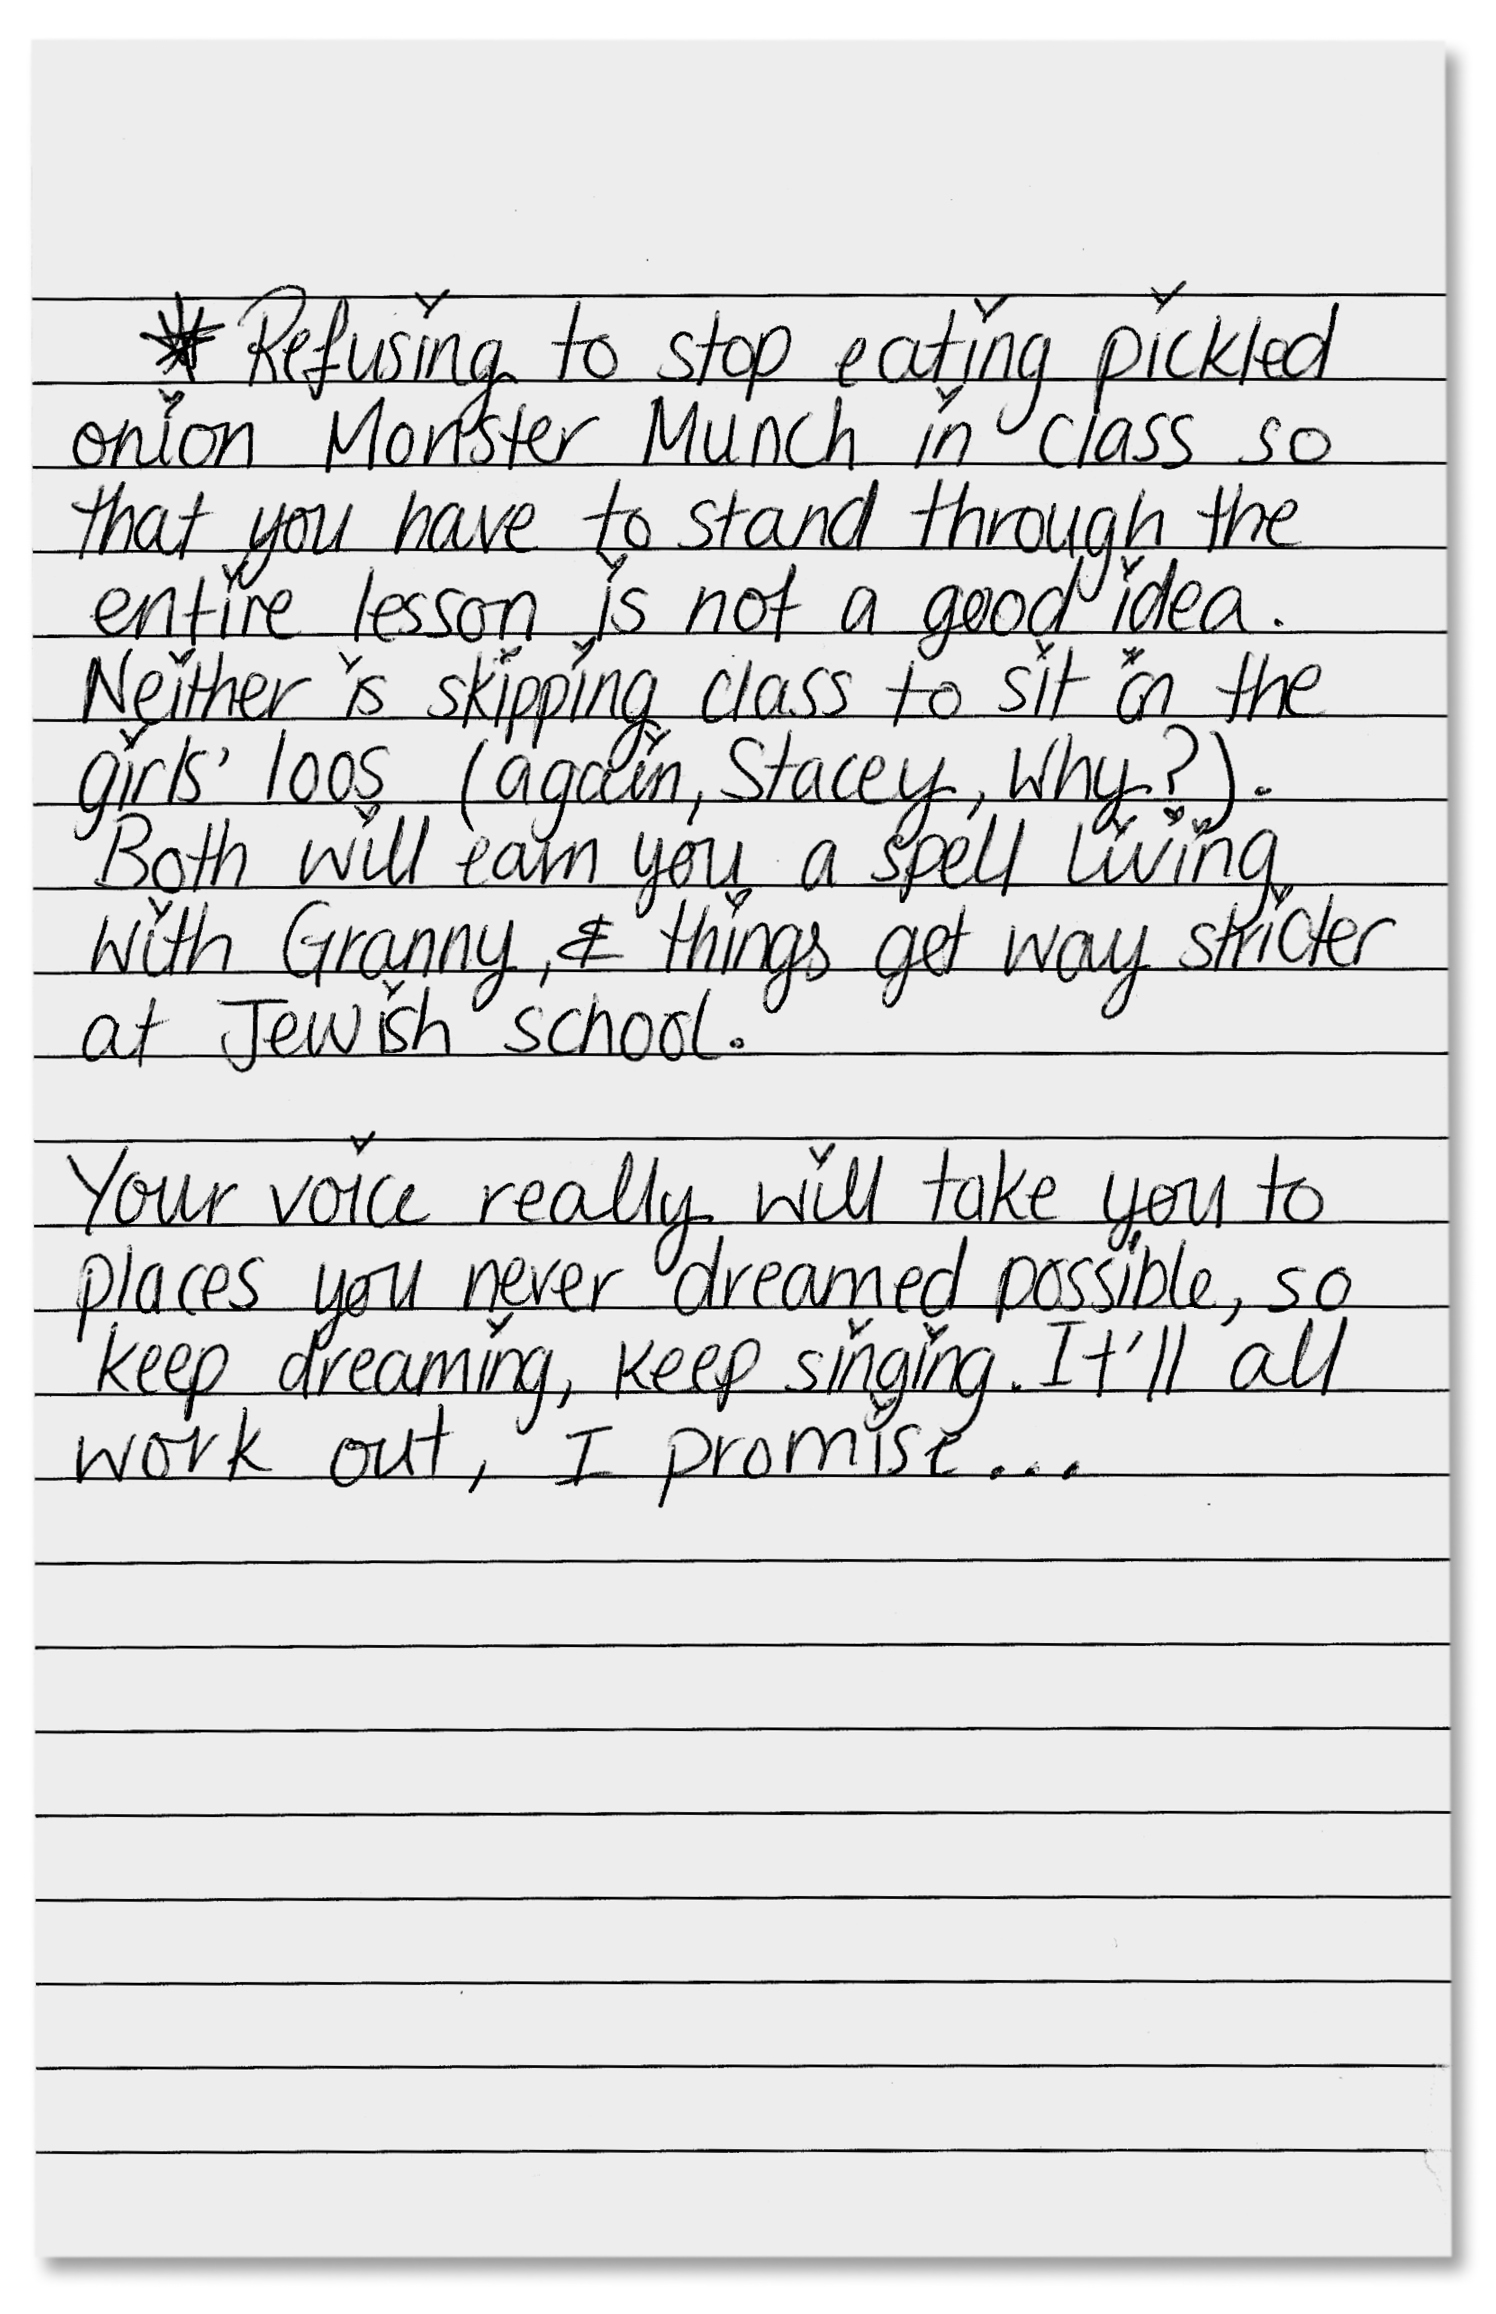 * Refusing to stop eating pickled
onion Monster Munch in class so
that you have to stand through the
entire lesson is not a good idea.
Neither is skipping class to sit in the
girls' loos (again, Stacey, why?).
Both will earn you a spell living
with Granny, & things get way stricter
at Jewish school.
Your voice really will take you to
places you never dreamed possible, so
keep dreaming, keep singing. It'll all
work out, I promise...